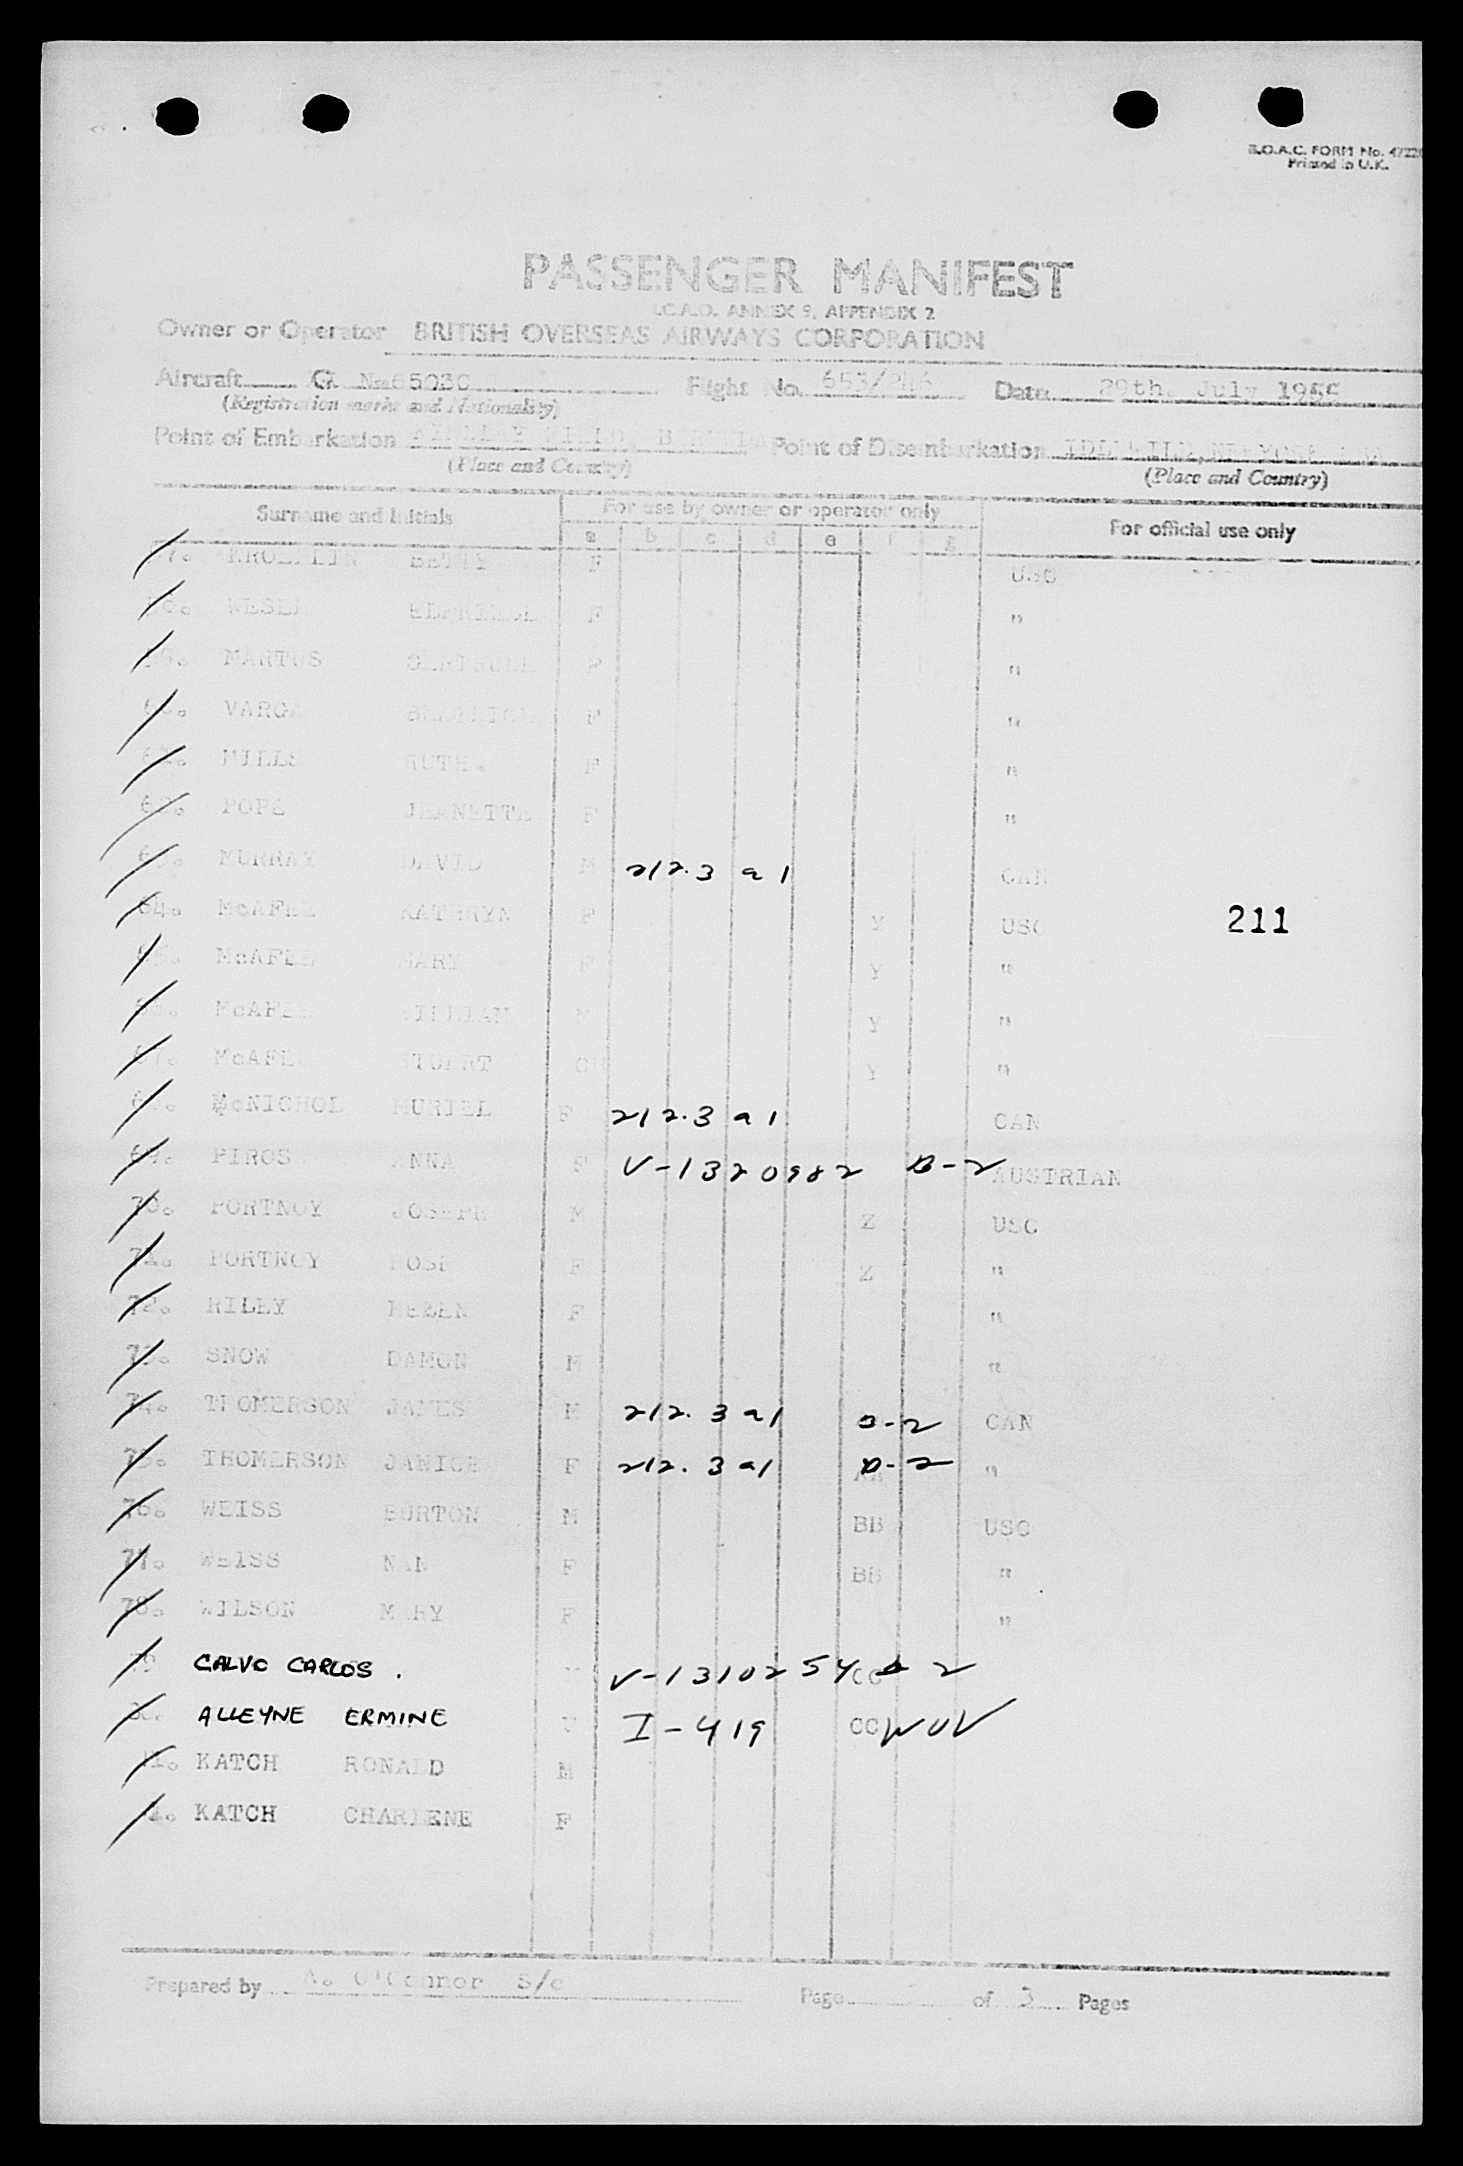 B.O.A.C. FORM No. 4722
Printed in U.K.
PASSENGER MANIFEST
I.C.A.O. ANNEX 9, APPENDIX 2
Owner or Operator BRITISH OVERSEAS AIRWAYS CORPORATION
Aircraft G Flight No. 653/ Date 29th July 1955
(Registration marks and Nationality)
Point of Embarkation Point of Disembarkation IDLEWILD, NEW YORK
(Place and Country) (Place and Country)
Surname and Initials For use by owner or operator only For official use only
a b c d e f g
BETTY F USC
F "
MARTUS GERTRUDE F "
VARGA F "
MILLS RUTH F "
62. POPE JEANETTE F "
MURRAY DAVID M 212.3 a 1 CAN
64. McAFEE KATHRYN F Y USC 211
McAFEE MARY F Y "
McAFEE WILLIAM M Y "
67. McAFEE STUART Y "
McNICHOL MURIEL F 212.3 a 1 CAN
69. PIROS ANNA F V-1320982 B-2 AUSTRIAN
70. PORTNOY JOSEPH M Z USC
71. PORTNOY ROSE F Z "
72. RILEY HELEN F "
73. SNOW DAMON M "
74. THOMERSON JAMES M 212. 3 a1 B-2 CAN
75. THOMERSON JANICE F 212. 3 a1 B-2 "
76. WEISS BURTON M BB USC
77. WEISS NAN F BB "
78. WILSON MARY F "
79 CALVO CARLOS . V-1310254 CC B 2
ALLEYNE ERMINE I-419 CC WUV
KATCH RONALD M
KATCH CHARLENE F
Prepared by A. O'Connor S/c Page of 3 Pages